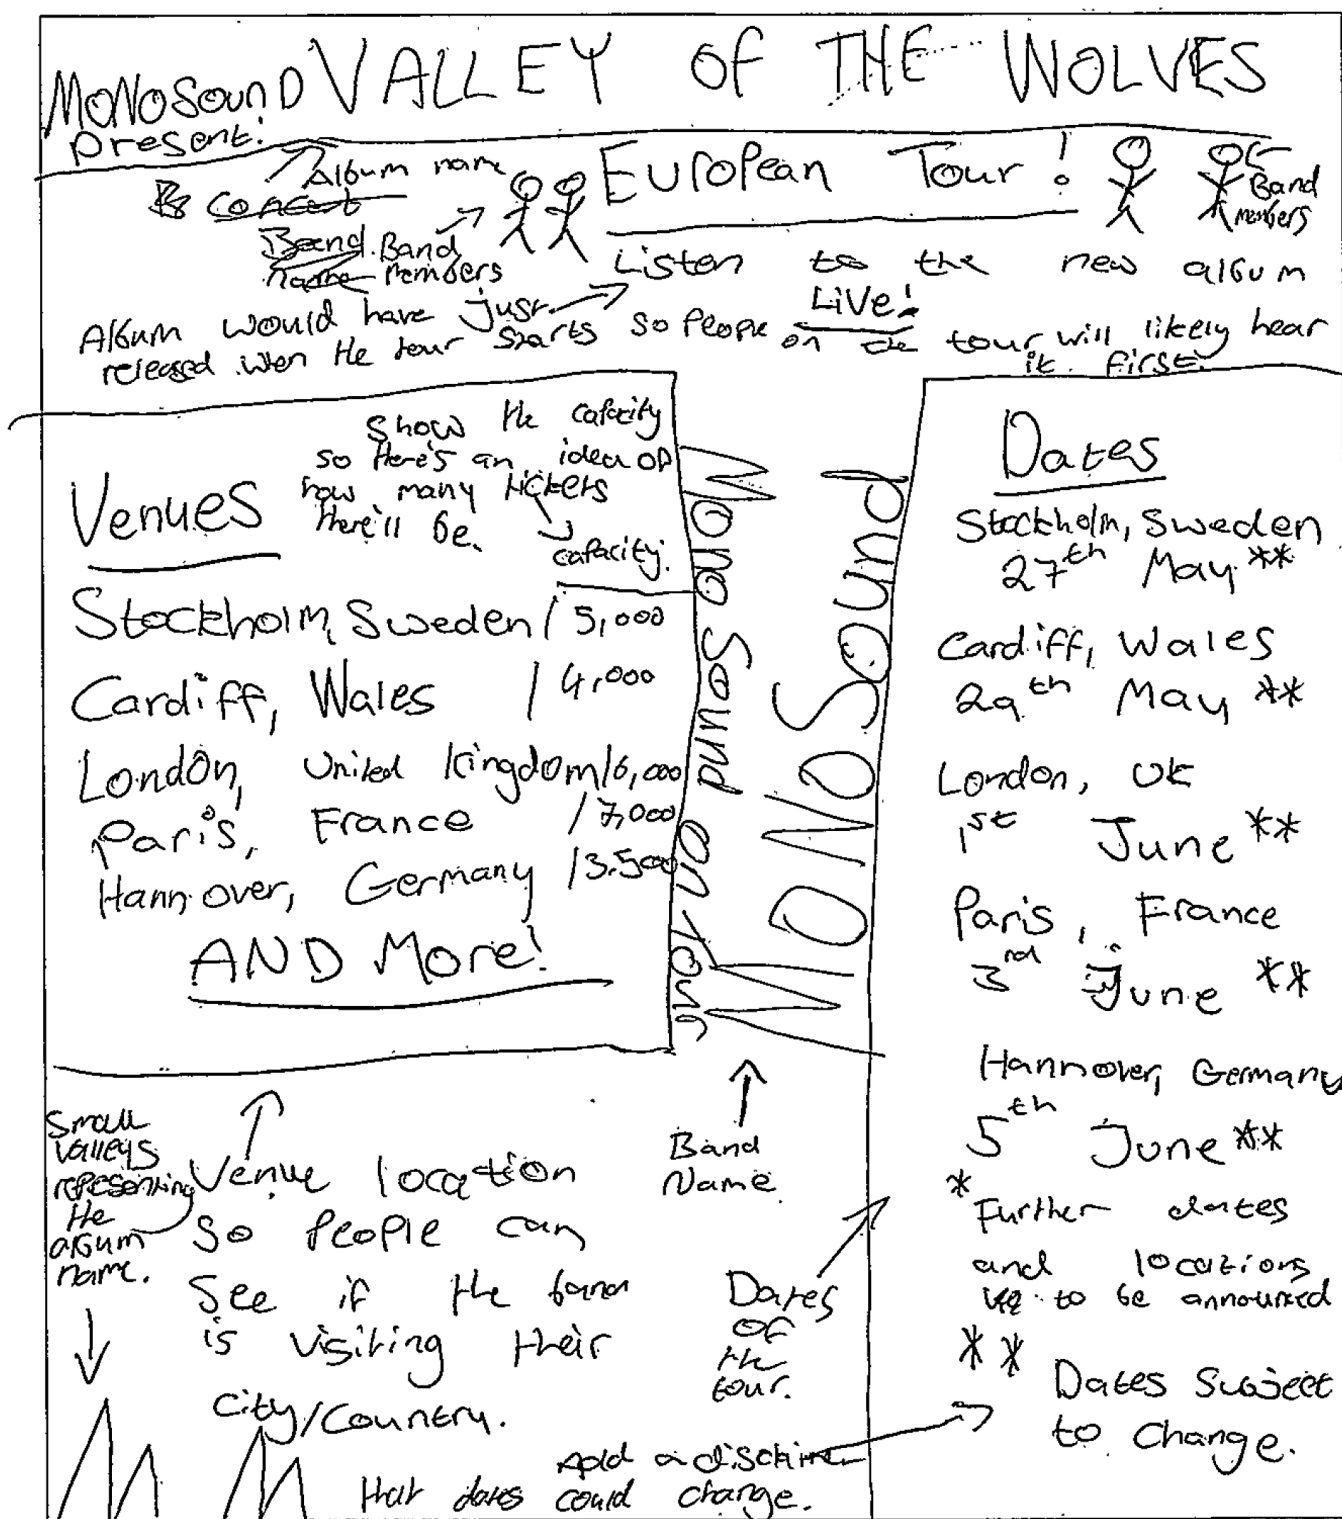 MONOSOUND VALLEY OF THE WOLVES
Present:
Album name
European Tour!
Concert
Band
members
Band Band
name members
Listen to the new album
LIVE!
Album would have just
released wen the tour starts so People on the tour will likely hear
it first.
Show the capacity
so there's an idea of
how many tickets
there'll be.
Venues
capacity.
Stockholm, Sweden / 5,000
Cardiff, Wales / 4,000
London, United Kingdom / 6,000
Paris, France / 7,000
Hannover, Germany / 3.500
AND More!
Mono Sound on tour
MONOSOUND
Dates
Stockholm, Sweden
27th May **
Cardiff, Wales
29th May **
London, UK
1st June **
Paris, France
3rd June **
Hannover, Germany
5th June **
* Further dates
and locations
to be announced
** Dates Subject
to Change.
Small
valleys
representing
the
album
name.
Venue location
so People can
See if the band
is visiting their
City/Country.
Band
Name.
Dates
of
the
tour.
Add a
that dates could change.